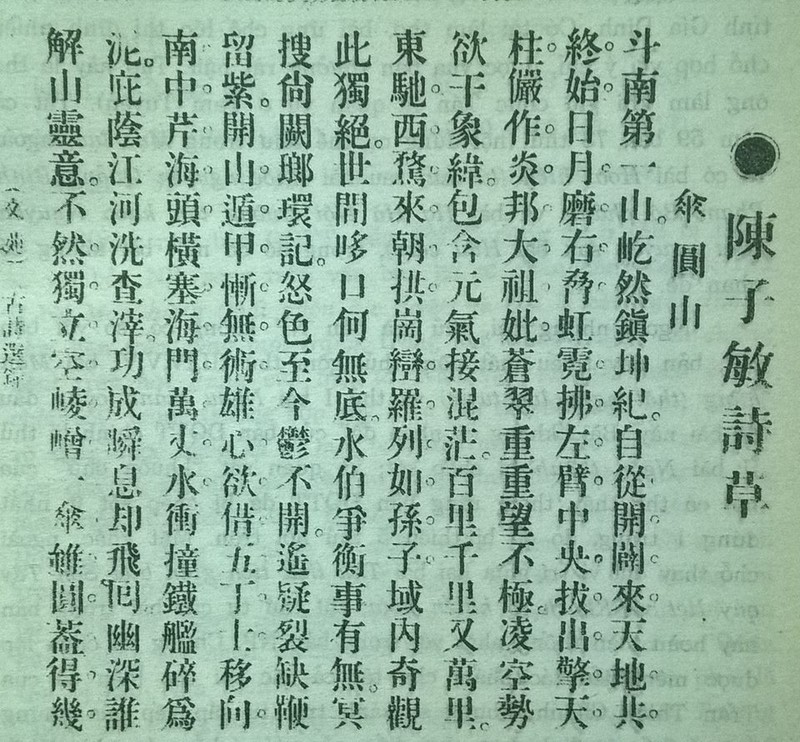 陳子敏詩草
傘圓山
斗南第一山。屹然鎭坤紀。自從開闢來。天地共
終始。日月磨右脅。虹霓拂左臂。中央拔出擎天
柱。儼作炎邦大祖妣。蒼翠重重望不極。凌空勢
欲干象緯。包含元氣接混茫。百里千里又萬里。
東馳西騖來朝拱。崗巒羅列如孫子。域內奇觀
此獨絕。世間哆口何無底。水伯爭衡事有無。冥
搜尙闕瑯環記。怒色至今鬱不開。遙疑裂缺鞭
留紫。開山遁甲慚無術。雄心欲借五丁上。移向
南中芹海頭。橫塞海門萬丈水。衝撞鐵艦碎爲
泥。庇蔭江河洗查滓。功成瞬息却飛回。幽深誰
解山靈意。不然獨立空崚嶒。一傘雖圓蓋得幾。
（文苑）古詩選錄